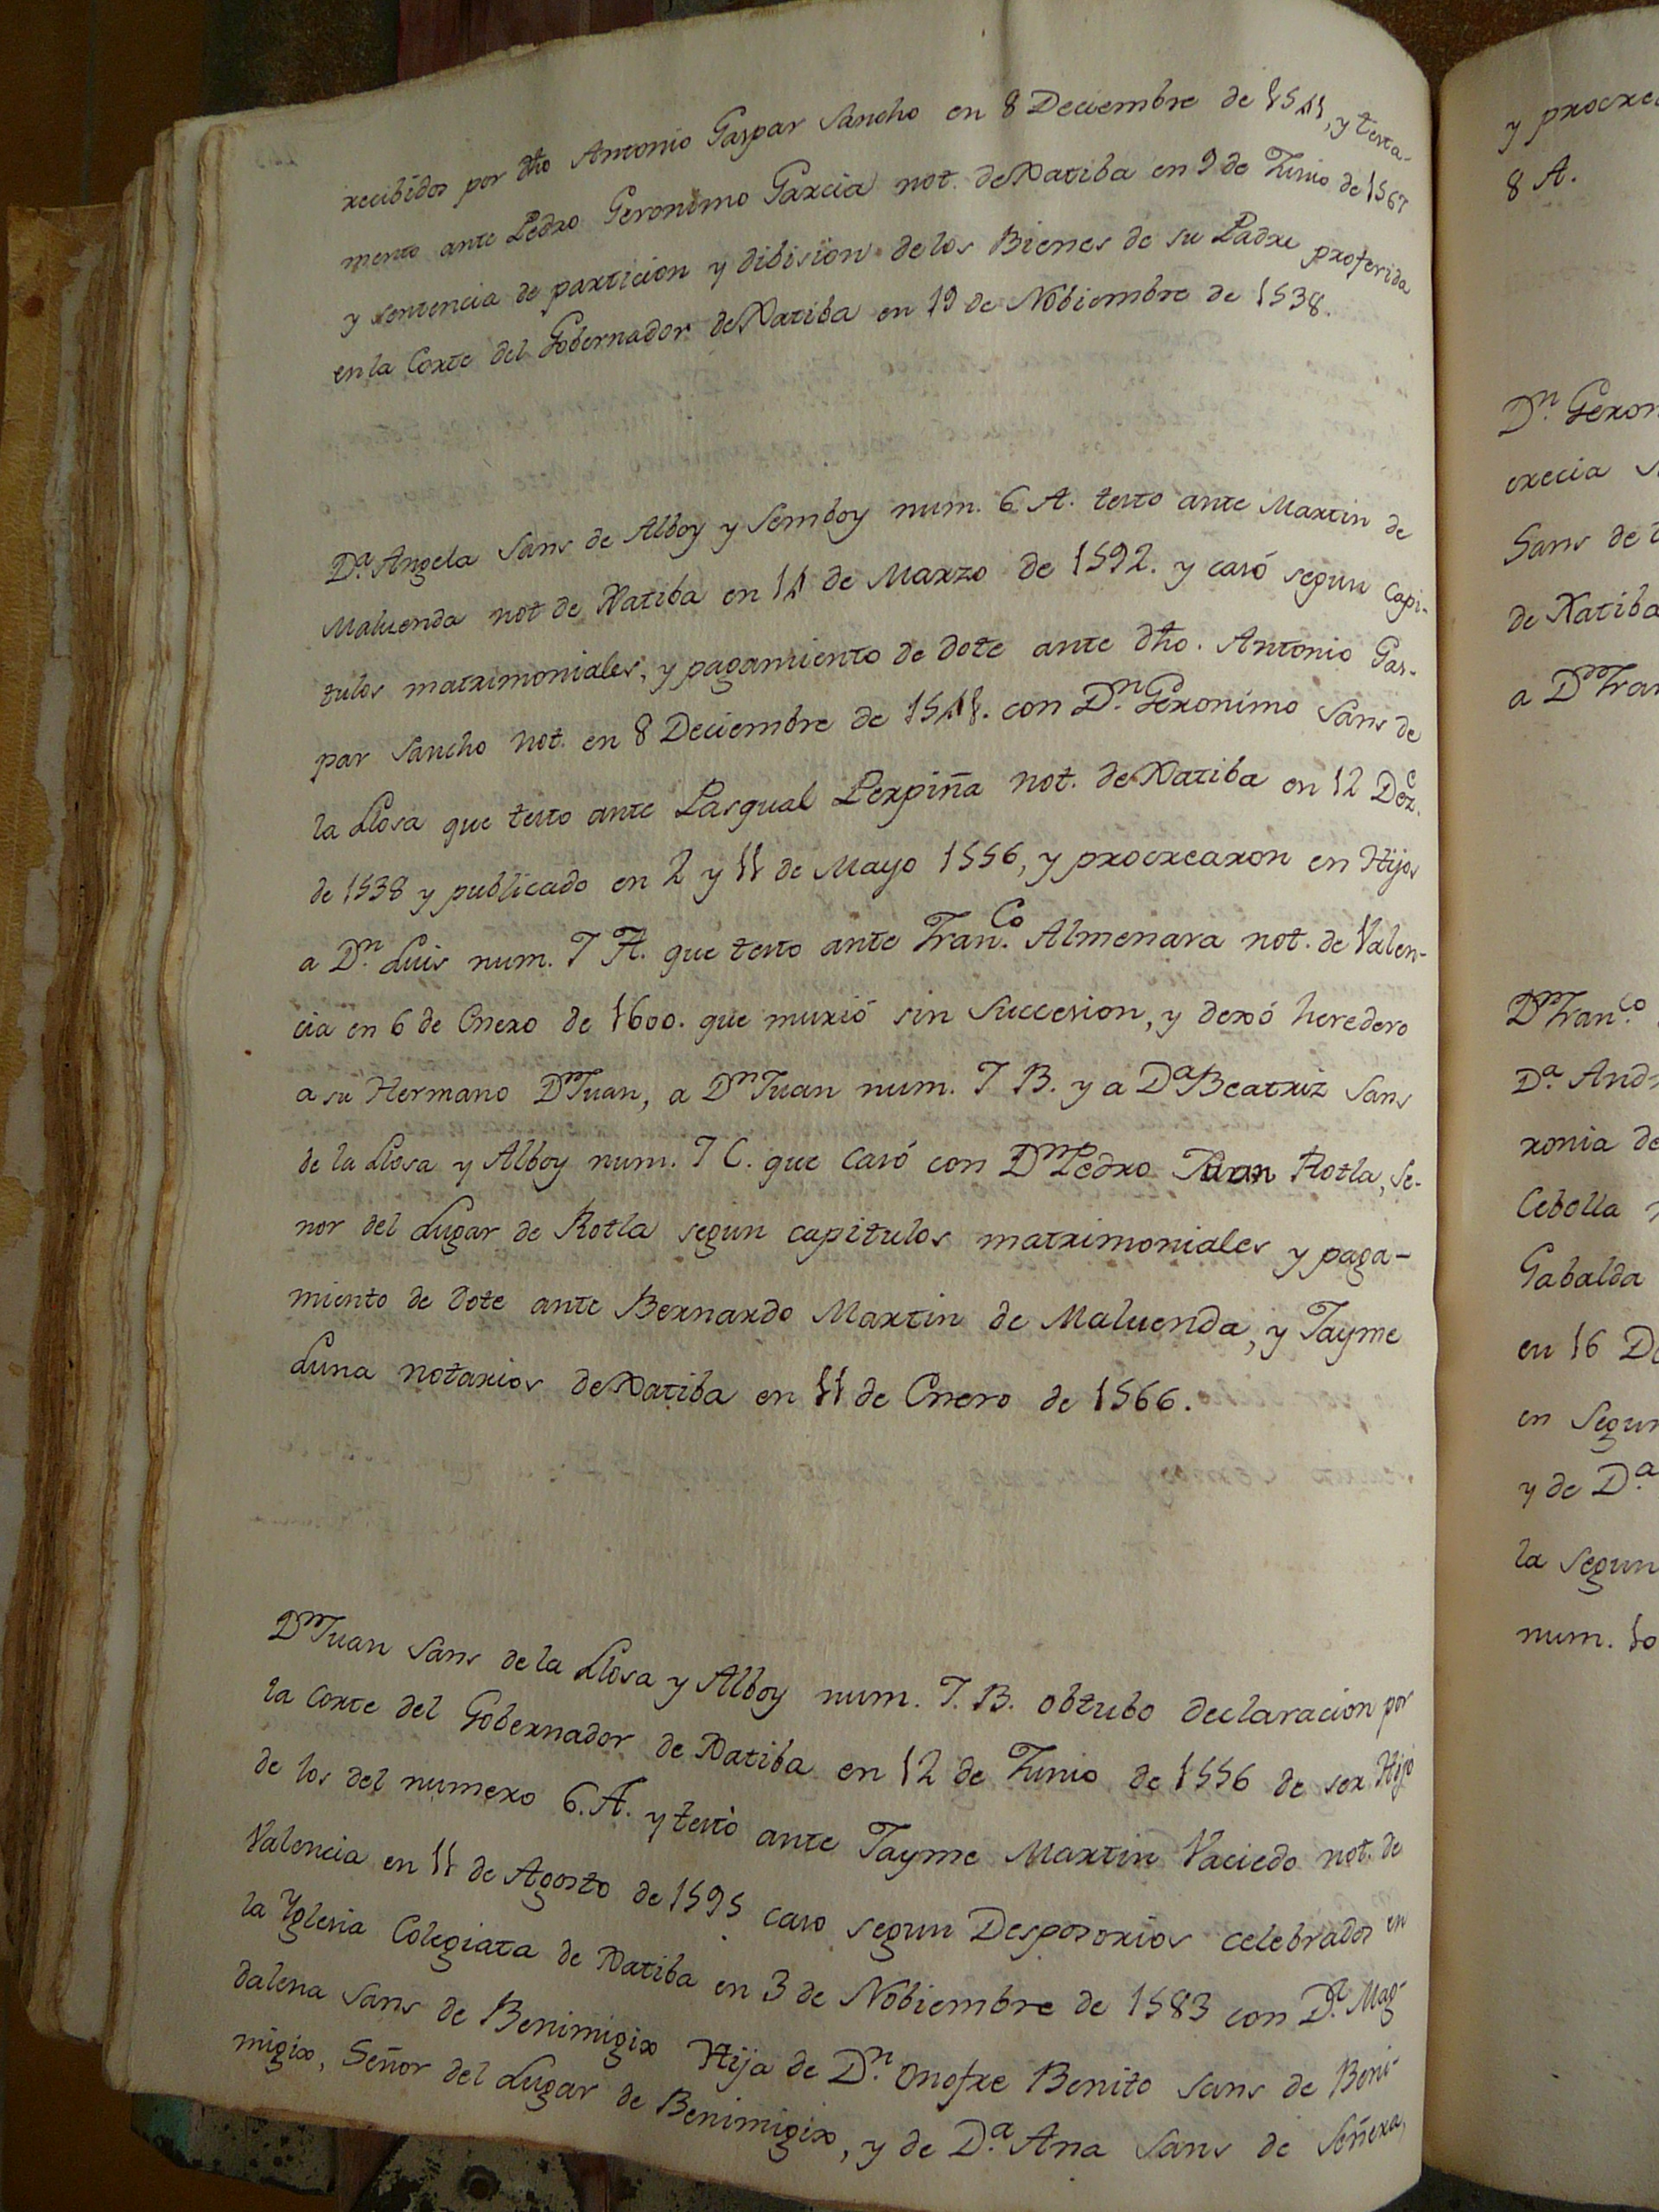 recibidos por dho Antonio Gaspar Sancho en 8 Deciembre de 1541, y testa-
mento ante Pedro Geronimo Garcia not. de Xatiba en 9 de Junio de 1567
y sentencia de particion y dibision de los Bienes de su Padre proferida
en la Corte del Gobernador de Xatiba en 19 de Nobiembre de 1538.
D.ª Angela Sans de Alboy y Semboy num. 6 A. testo ante Martin de
Maluenda not de Xatiba en 14 de Marzo de 1592. y casó segun Capi-
tulos matrimoniales, y pagamiento de dote ante dho. Antonio Gas-
par Sancho not. en 8 Deciembre de 1541. con D.n Geronimo Sans de
la Llosa que testo ante Pasqual Perpiña not. de Xatiba en 12 Der.
de 1538 y publicado en 2 y 11 de Mayo 1556, y procrearon en Hijos
a D.n Luis num. 7 A. que testo ante Fran.co Almenara not. de Valen-
cia en 6 de Enero de 1600. que murió sin Succesion, y dexó heredero
a su Hermano Dn Juan, a Dn Juan num. 7 B. y a Da Beatriz Sans
de la Llosa y Alboy num. 7 C. que Casó con Dn Pedro Juan Rotla, Se-
nor del Lugar de Rotla segun capitulos matrimoniales y paga-
miento de Dote ante Bernardo Martin de Maluenda, y Jayme
Luna notarios de Xatiba en 11 de Enero de 1566.
Dn Juan Sans de la Llosa y Alboy num. 7. B. obtubo declaracion por
la Corte del Gobernador de Xatiba en 12 de Junio de 1556 de ser Hijo
de los del numero 6. A. y testò ante Jayme Martin Vaciedo not. de
Valencia en 11 de Agosto de 1595 caso segun Desposorios celebrados en
la Yglesia Colegiata de Xatiba en 3 de Nobiembre de 1583 con D.ª Mag-
dalena Sans de Benimigix Hija de D.n Onofre Benito Sans de Beni-
migix, Señor del Lugar de Benimigix, y de D.ª Ana Sans de Señera,
y procrea
8 A.
D.n Geron
crecia
Sans de
de Xatiba
a Dn Fran
Dn Fran.co
D.ª And
ronia de
Cebolla
Gabalda
en 16 De
en Segun
y de D.ª
la Segun
num. 10